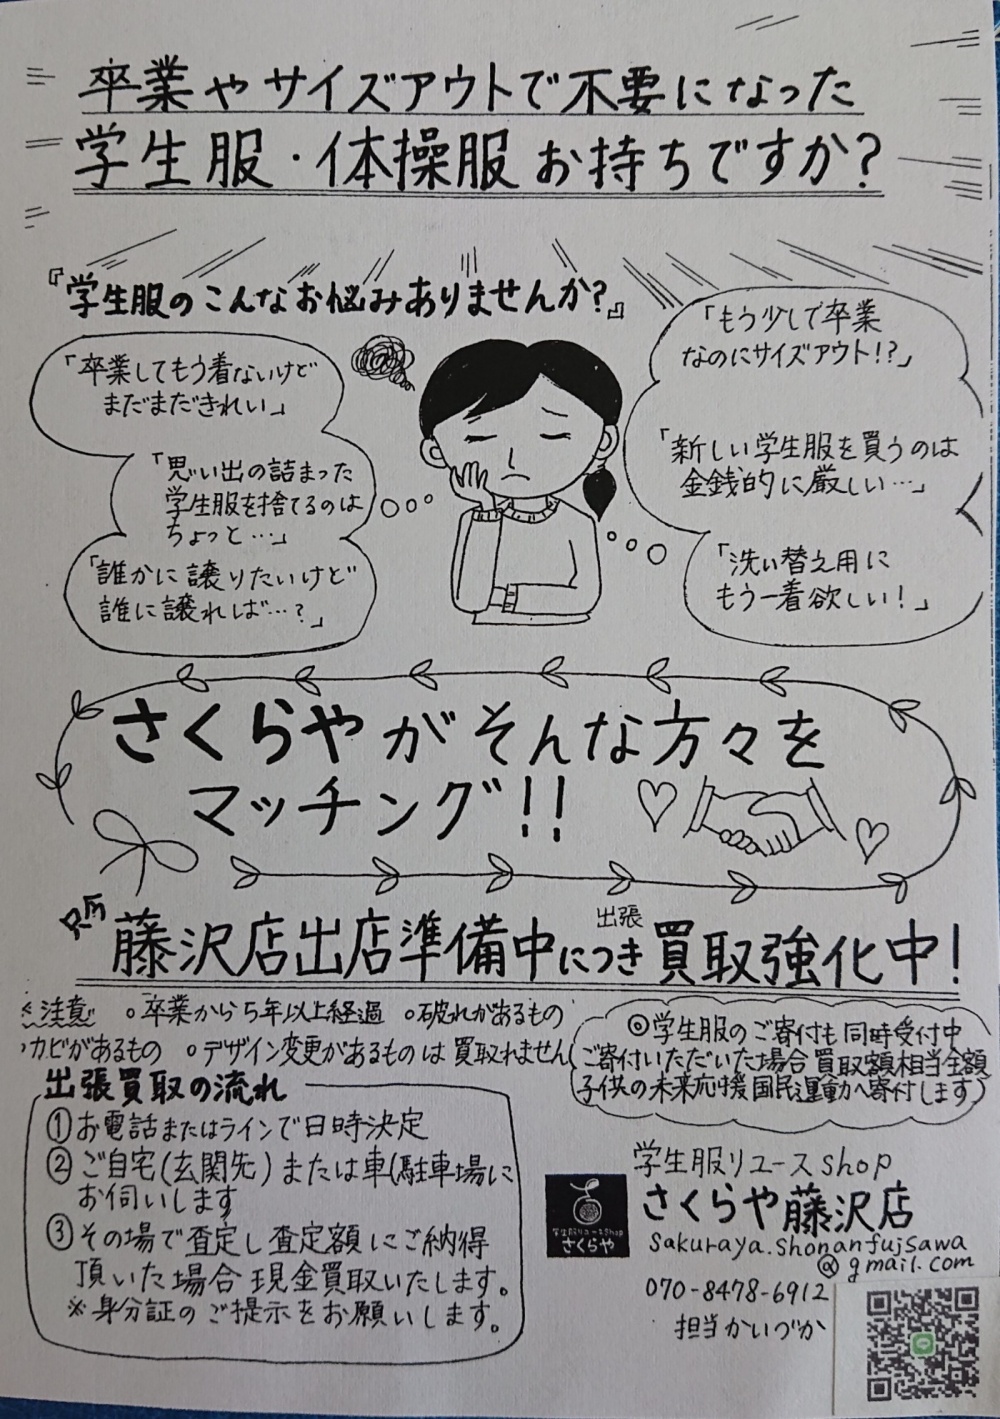 卒業やサイズアウトで不要になった
学生服・体操服お持ちですか?
『学生服のこんなお悩みありませんか?』
「卒業してもう着ないけど
まだまだきれい」
「思い出の詰まった
学生服を捨てるのは
ちょっと…」
「誰かに譲りたいけど
誰に譲れしば…?」
「もう少しで卒業
なのにサイズアウト!?」
「新しい学生服を買うのは
金銭的に厳しい…」
「洗い替え用に
もう一着欲しい!」
さくらやがそんな方々を
マッチング!!
藤沢店出店準備中につき出張買取強化中!
注意 ○卒業から5年以上経過 ○破れがあるもの
カビがあるもの ○デザイン変更があるものは買取れません
◎学生服のご寄付も同時受付中
(ご寄付いただいた場合買取額相当金額
子供の未来応援国民運動へ寄付します)
出張買取の流れ
①お電話またはラインで日時決定
②ご自宅(玄関先)または車(駐車場に
お伺いします
③その場で査定し査定額にご納得
頂いた場合現金買取いたします。
※身分証のご提示をお願いします。
学生服リユースshop
さくらや藤沢店
sakuraya.shonanfujisawa
@gmail.com
070-8478-6912
担当かいづか
学生服リユースshop
さくらや